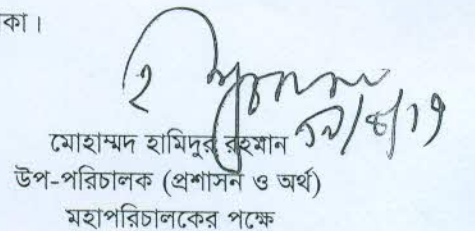 কা।
মোহাম্মদ হামিদুর রহমান
উপ-পরিচালক (প্রশাসন ও অর্থ)
মহাপরিচালকের পক্ষে